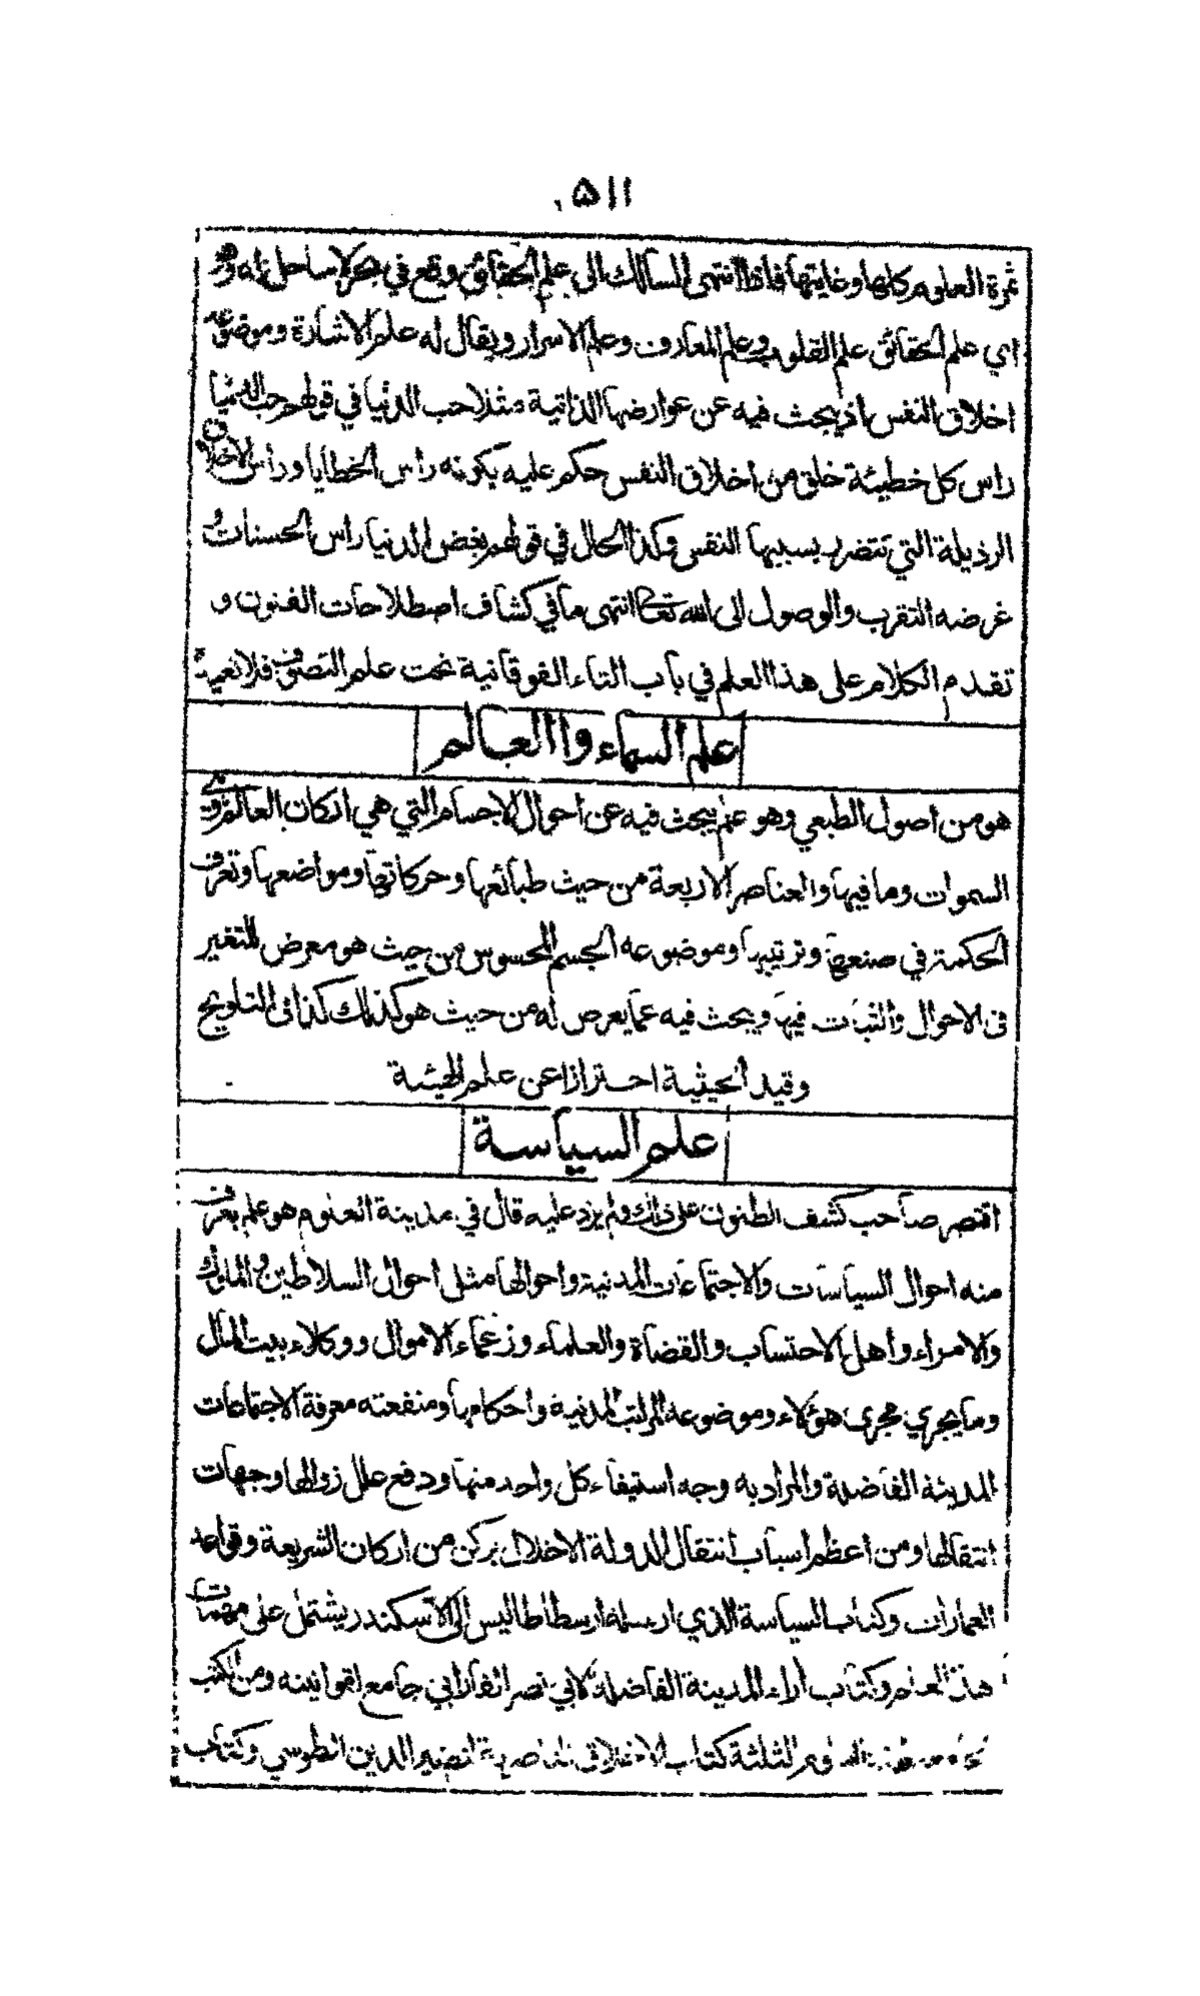 ٥١١
ثمرة العلوم كلها وغايتها فاذا انتهى السالك الى علم الحقائق وقع في بحر لا ساحل له وهو
اي علم الحقائق علم القلوب وعلم المعارف وعلم الاسرار ويقال له علم الاشارة وموضوعه
اخلاق النفس اذ يبحث فيه عن عوارضها الذاتية مثلا حب الدنيا في قولهم حب الدنيا
راس كل خطيئة خلق من اخلاق النفس حكم عليه بكونه راس الخطايا وراس الاخلاق
الرذيلة التي تتضرر بسببها النفس وكذا الحال في قولهم بغض الدنيا راس الحسنات و
غرضه التقرب والوصول الى الله تعالى انتهى ما في كشاف اصطلاحات الفنون و
تقدم الكلام على هذا العلم في باب التاء الفوقانية تحت علم التصوف فلا نعيده
علم السماء والعالم
هو من اصول الطبعي وهو علم يبحث فيه عن احوال الاجسام التي هي اركان العالم وهي
السموات وما فيها والعناصر الاربعة من حيث طبائعها وحركاتها ومواضعها وتعرف
الحكمة في صنعها وترتيبها وموضوعه الجسم المحسوس من حيث هو معرض للتغير
في الاحوال والثبات فيها ويبحث فيه عما يعرض له من حيث هو كذلك كذا في التلويح
وقيد الحيثية احترازا عن علم الهيئة
علم السياسة
اقتصر صاحب كشف الظنون على ذلك ولم يزد عليه قال في مدينة العلوم هو علم يعرف
منه احوال السياسات والاجتماعات المدنية واحوالها مثل احوال السلاطين والملوك
والامراء واهل الاحتساب والقضاة والعلماء وزعماء الاموال ووكلاء بيت المال
وما يجري مجرى هؤلاء وموضوعه المراتب المدنية واحكامها ومنفعته معرفة الاجتماعات
المدينة الفاضلة والمراد به وجه استيفاء كل واحد منها ودفع علل زوالها وجهات
انتقالها ومن اعظم اسباب انتقال الدولة الاخلال بركن من اركان الشريعة وقواعد
العمارات وكتاب السياسة الذي ارسله ارسطاطاليس الى الاسكندر يشتمل على مهمات
هذا العلم وكتاب اراء المدينة الفاضلة لابي نصر الفارابي جامع لقوانينه ومن الكتب
الثلثة كتاب الاخلاق الناصرية لنصير الدين الطوسي وكتاب